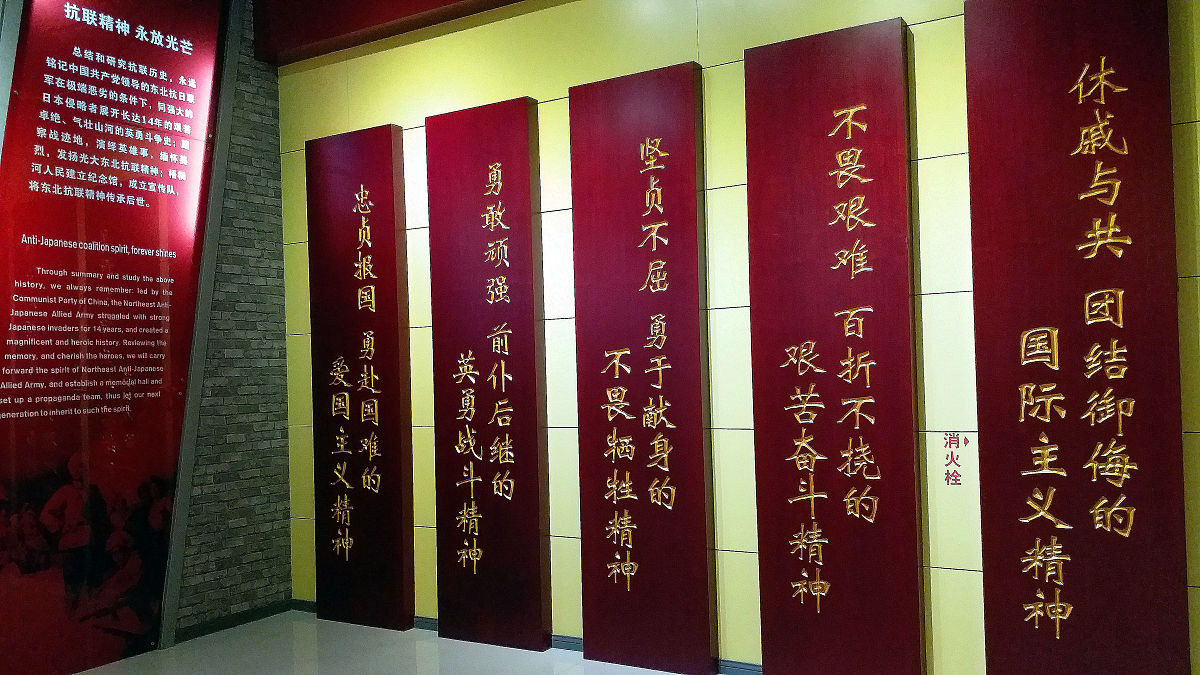 抗联精神 永放光芒
总结和研究抗联历史，永远
铭记中国共产党领导的东北抗日联
军在极端恶劣的条件下，同强大的
日本侵略者展开长达14年的艰苦
卓绝、气壮山河的英勇斗争史；
察战迹地，演绎英雄事，缅怀英
烈，发扬光大东北抗联精神；梧桐
河人民建立纪念馆，成立宣传队，
将东北抗联精神传承后世。
Anti-Japanese coalition spirit, forever shines
Through summary and study the above
history, we always remember: led by the
Communist Party of China, the Northeast Anti-
Japanese Allied Army struggled with strong
Japanese invaders for 14 years, and created a
magnificent and heroic history. Reviewing the
memory, and cherish the heroes, we will carry
forward the spirit of Northeast Anti-Japanese
Allied Army, and establish a memorial hall and
set up a propaganda team, thus let our next
generation to inherit to such the spirit.
忠贞报国 勇赴国难的
爱国主义精神
勇敢顽强 前仆后继的
英勇战斗精神
坚贞不屈 勇于献身的
不畏牺牲精神
不畏艰难 百折不挠的
艰苦奋斗精神
消火栓
休戚与共 团结御侮的
国际主义精神